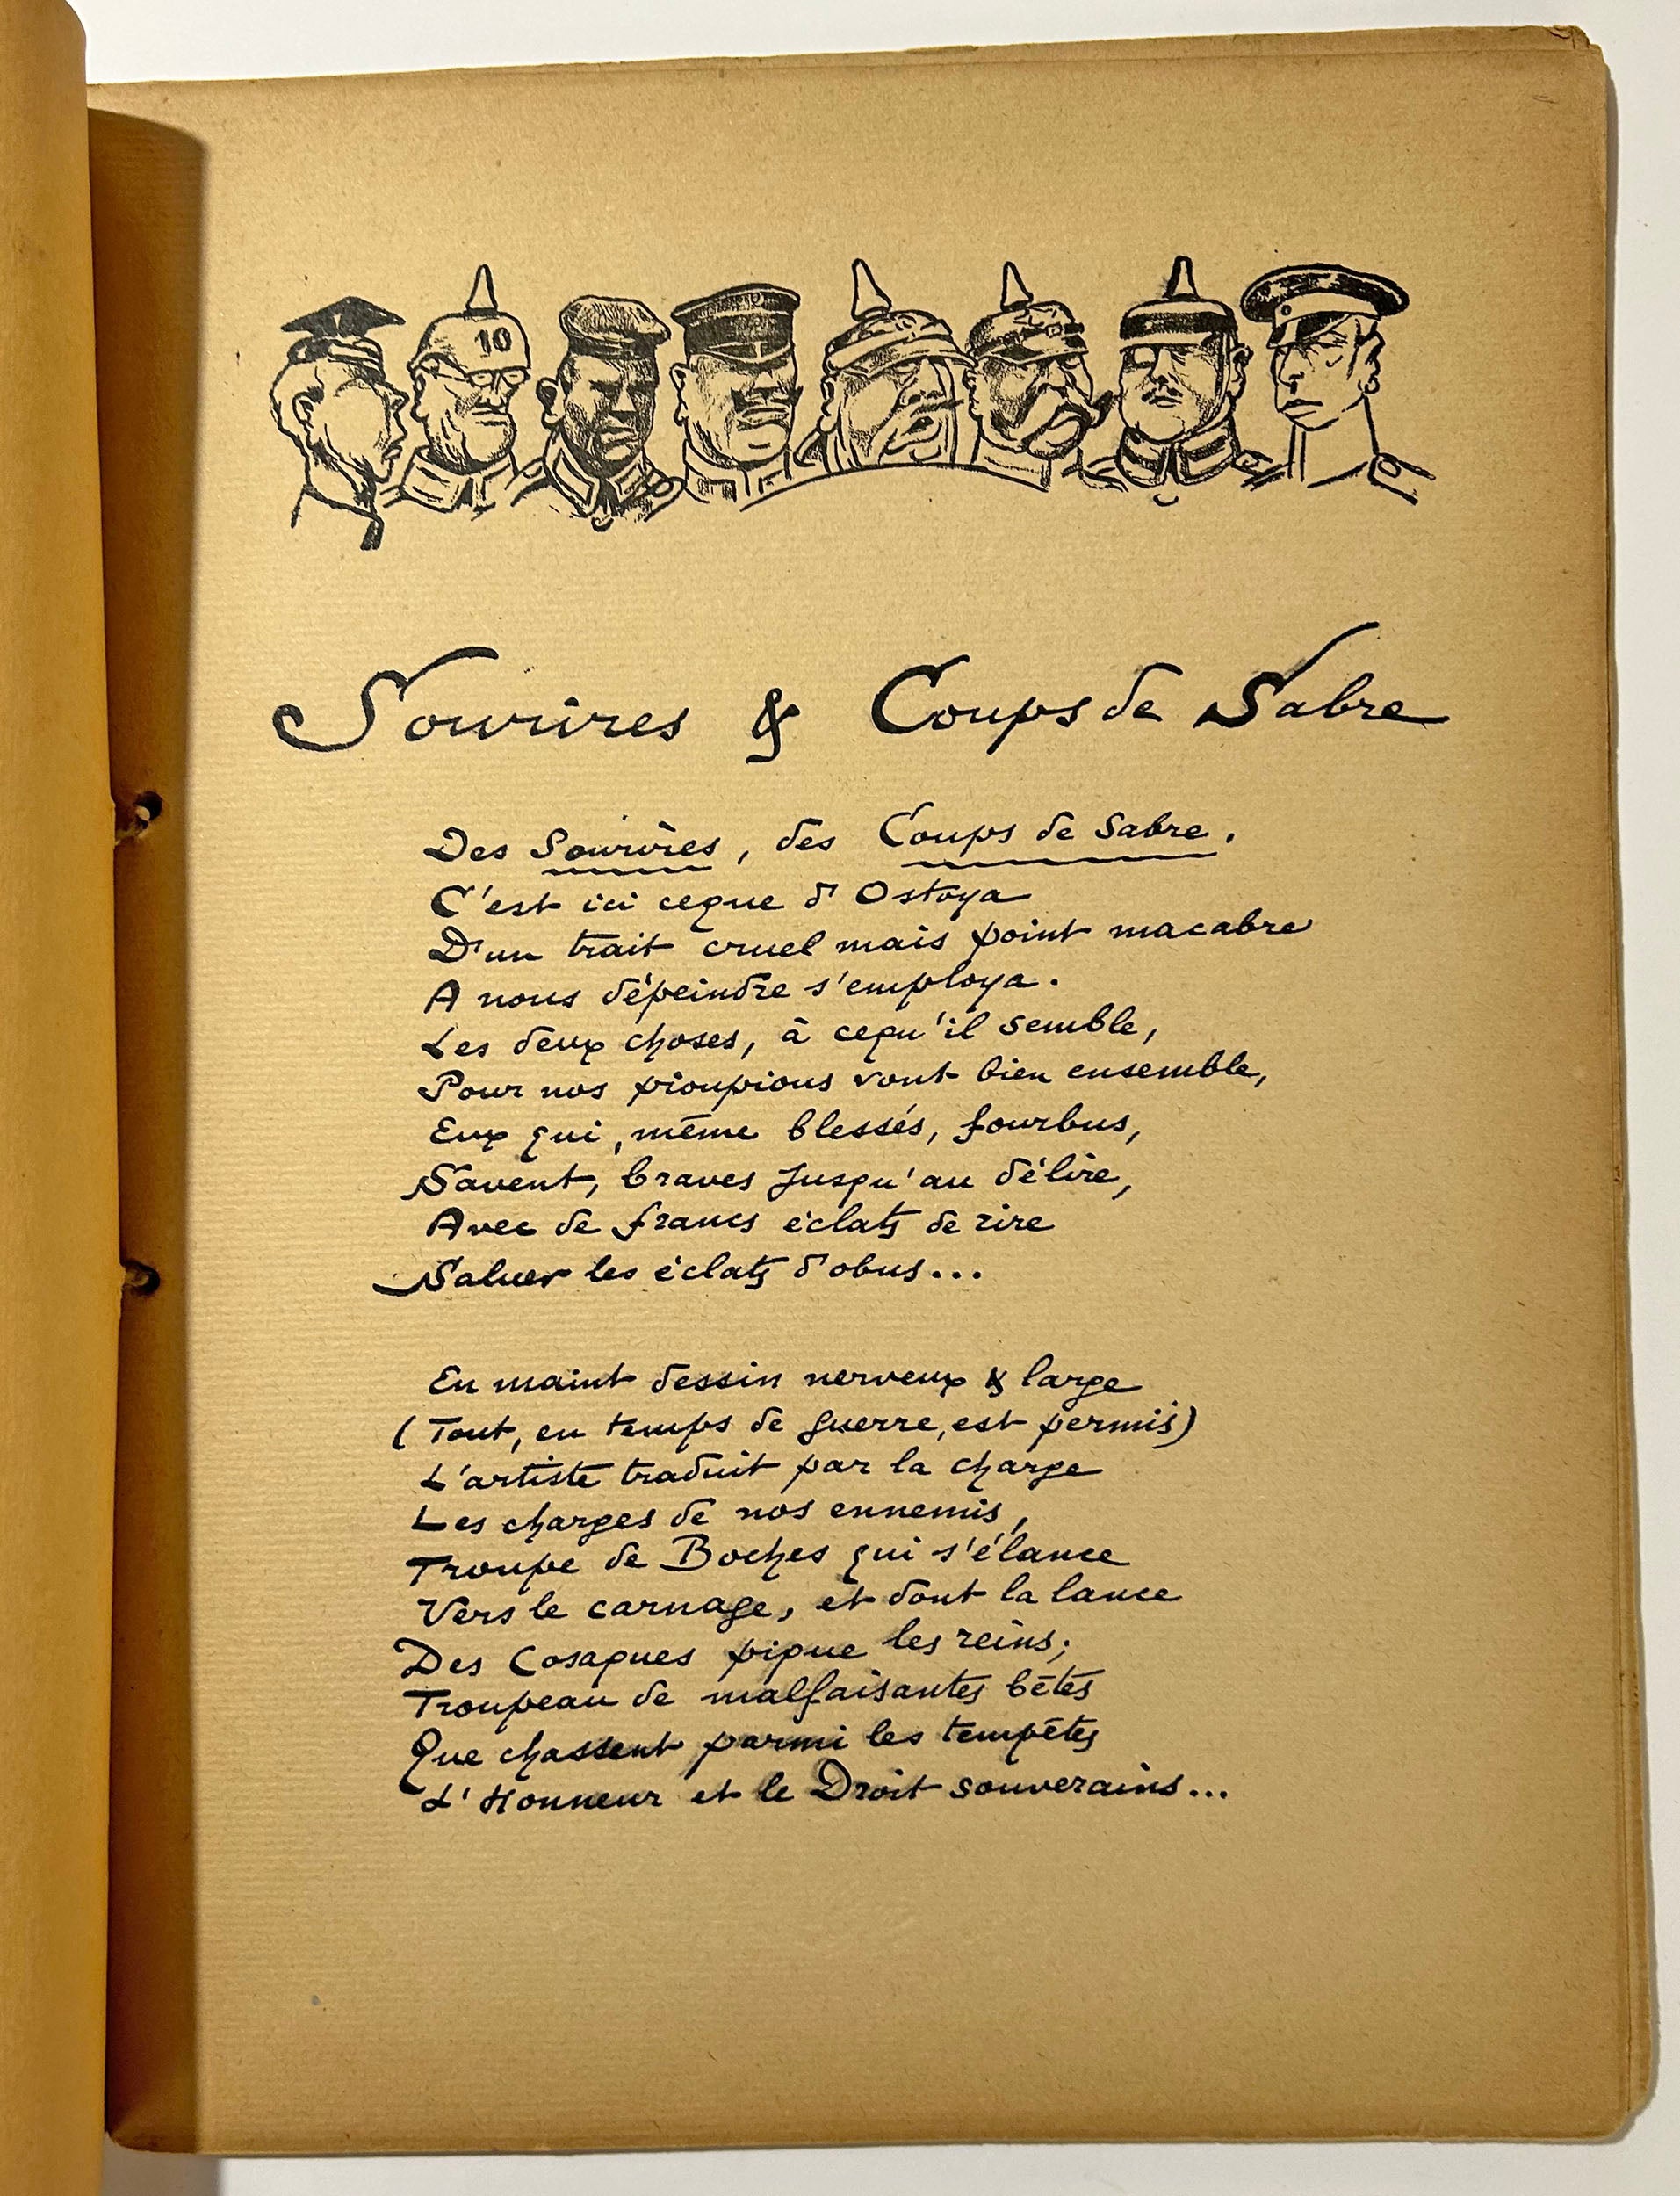 10
Sourires & Coups de Sabre
Des Sourires, des Coups de Sabre.
C'est ici ce que d'Ostoya
D'un trait cruel mais point macabre
A nous dépeindre s'employa.
Les deux choses, à ce qu'il semble,
Pour nos pioupious vont bien ensemble,
Eux qui, même blessés, fourbus,
Savent, braves jusqu'au délire,
Avec de francs éclats de rire
Saluer les éclats d'obus...
En maint dessin nerveux & large
(Tout, en temps de guerre, est permis)
L'artiste traduit par la charge
Les charges de nos ennemis,
Troupe de Boches qui s'élance
Vers le carnage, et dont la lance
Des Cosaques pique les reins;
Troupeau de malfaisantes bêtes
Que chassent parmi les tempêtes
L'Honneur et le Droit souverains...